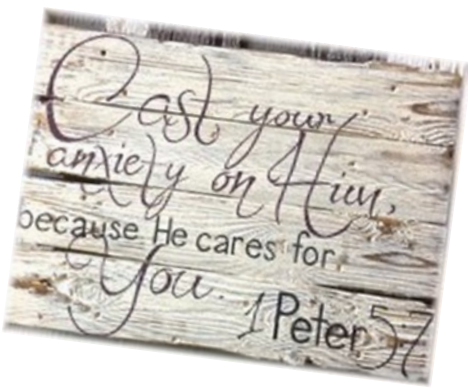 Cast your
anxiety on Him,
because He cares for
You.
1 Peter 5 7